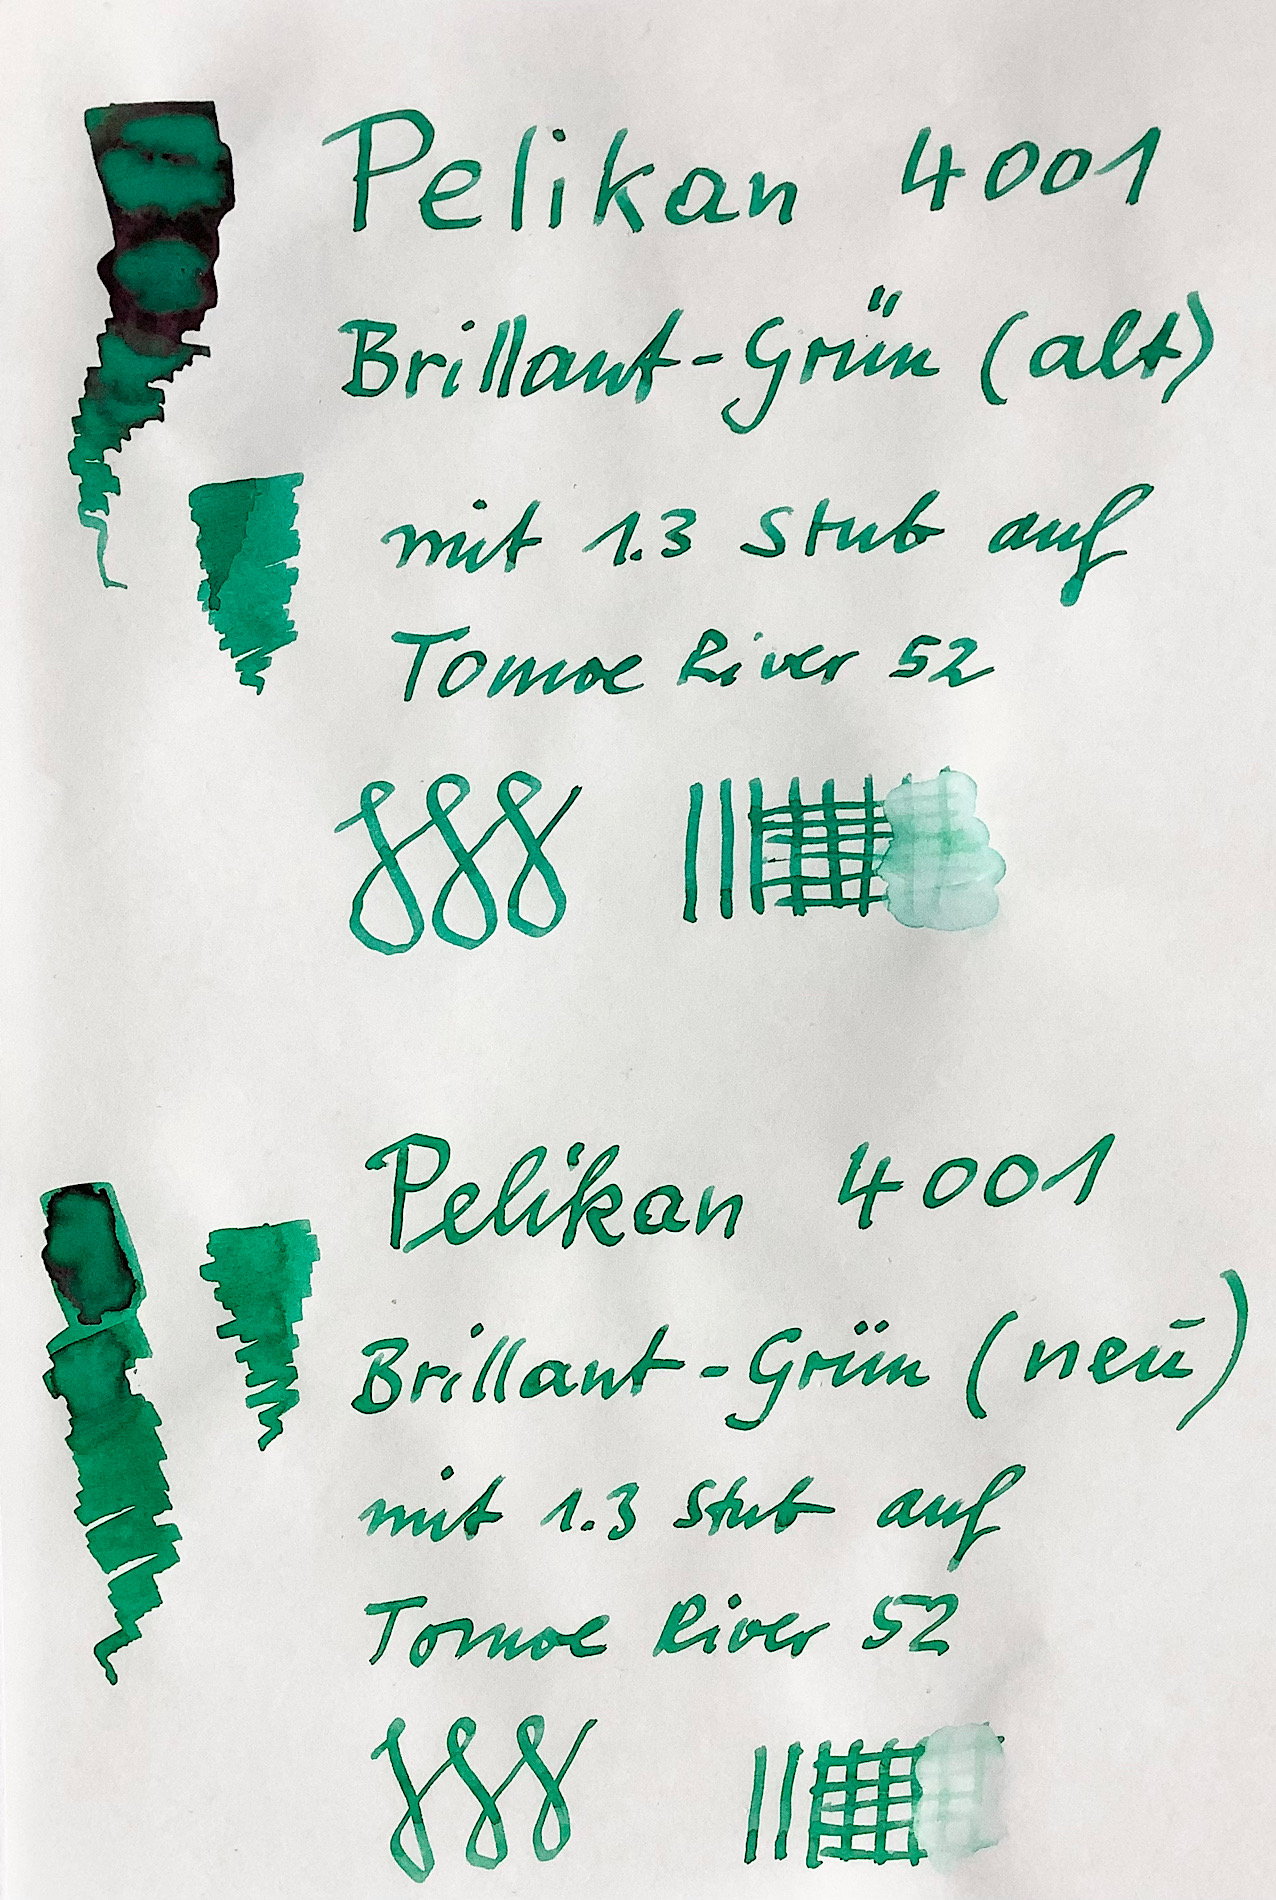 Pelikan 4001
Brillant-Grün (alt)
mit 1.3 Stub auf
Tomoe River 52
Pelikan 4001
Brillant-Grün (neu)
mit 1.3 Stub auf
Tomoe River 52